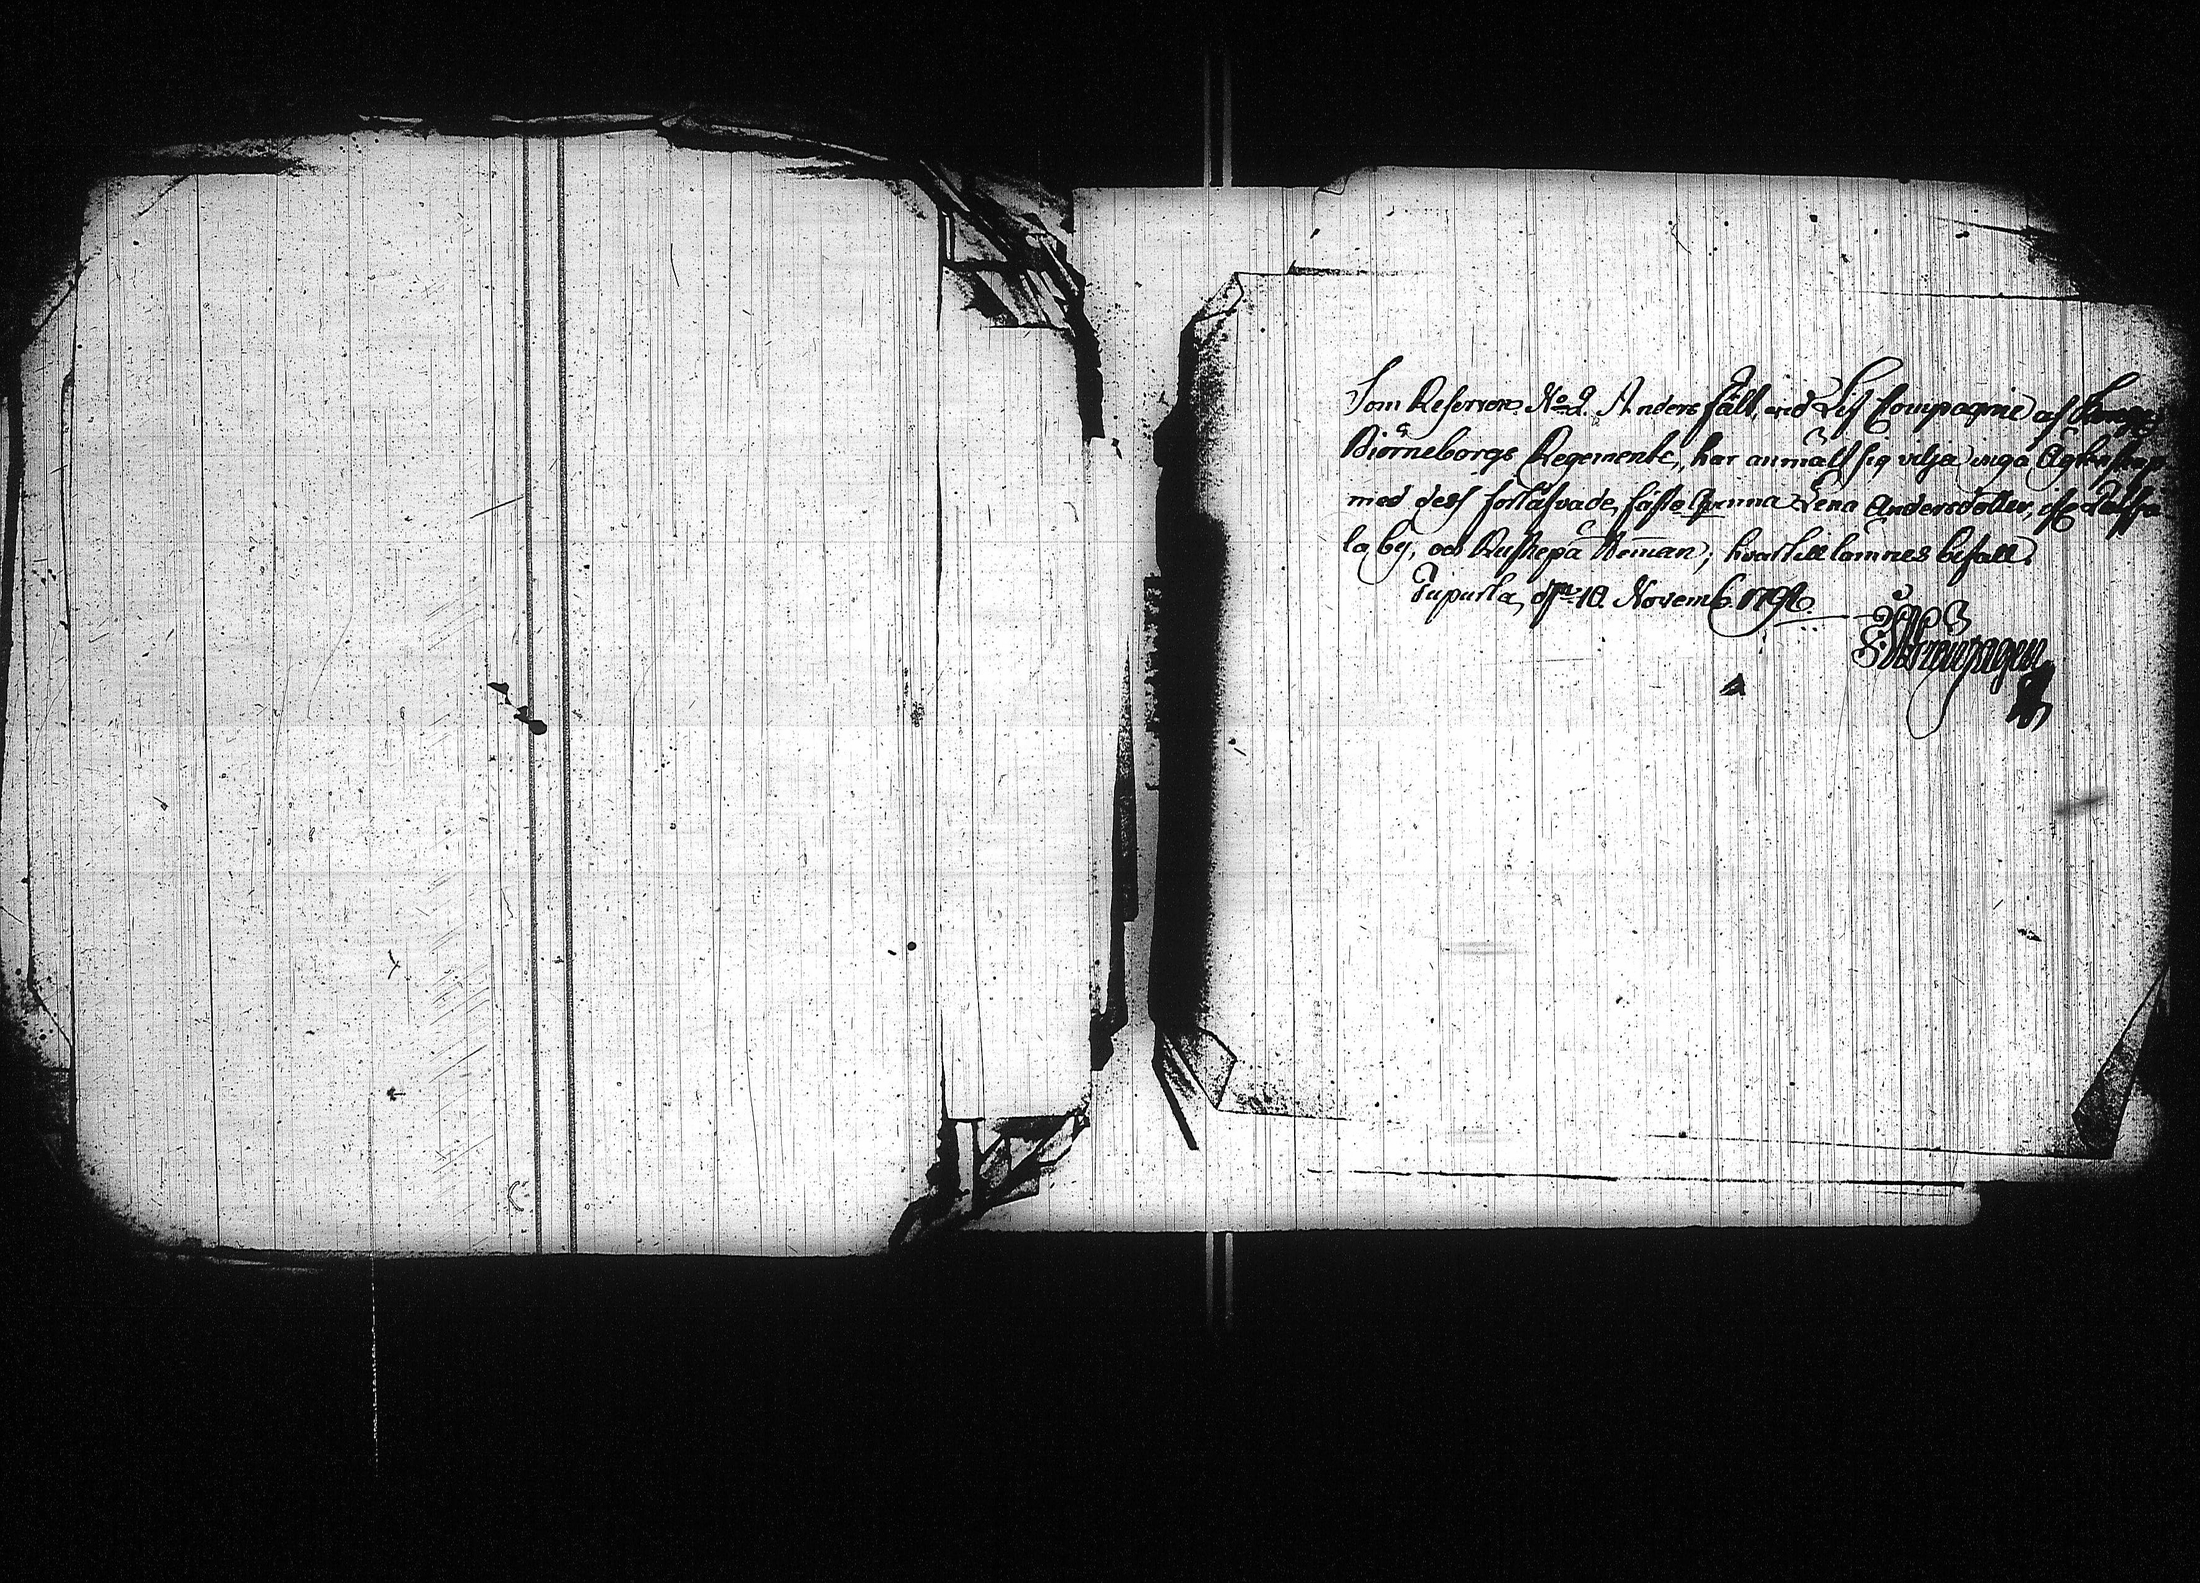 Som Reserven No 2. Anders Fält, vid Lif Compagnie af
Biörneborgs Regemente, har anmält sig vilja ingå Ägtenskap
med dess förlåfvade, fäste Qvinna Lena Andersdotter, ifr.
la by, och Rusthepå Heman; hvartill lämnes bifall.
Tupurla, d. 10. Novemb. 1792.